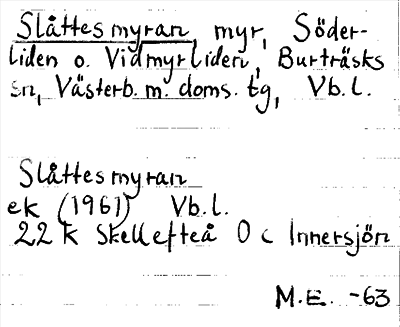 Slåttesmyran, myr, Söder-
liden o. Vidmyrliden, Burträsks
sn, Västerb. m. doms. tg, Vb.l.
Slåttesmyran
ek (1961) Vb.l.
22 K Skellefteå 0 c Innersjön
M.E. -63